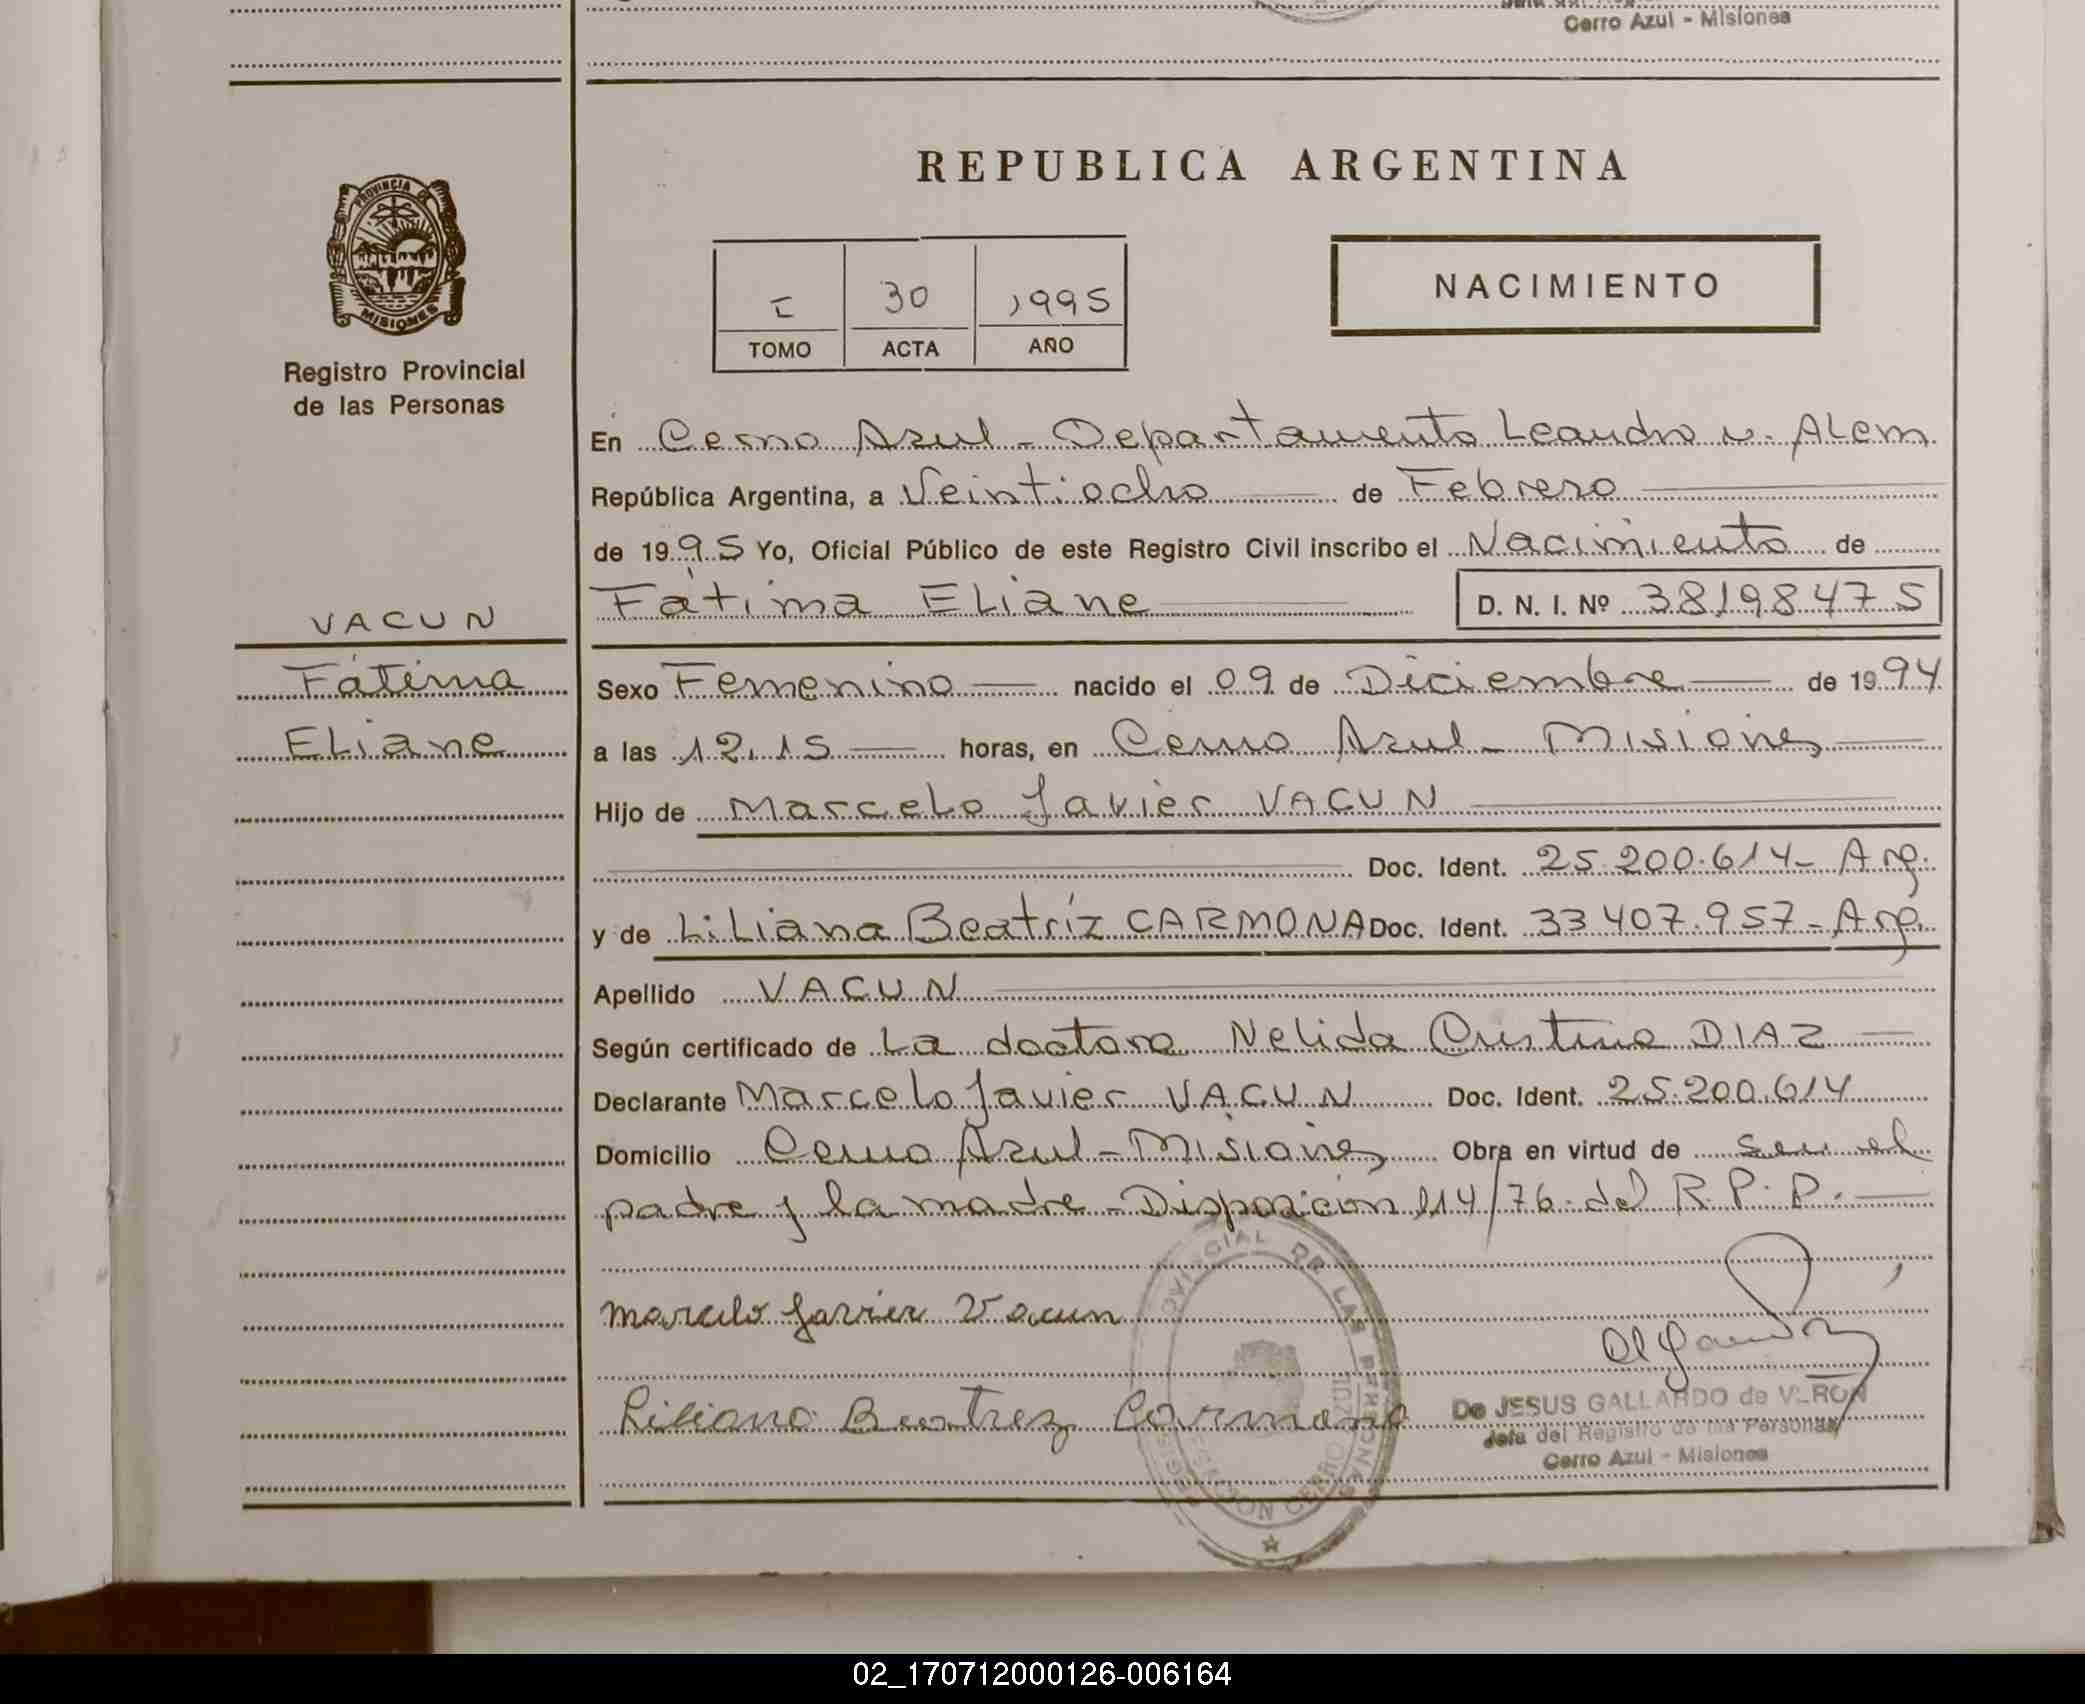 Cerro Azul - Misiones
REPUBLICA ARGENTINA
PROVINCIA DE
MISIONES
Registro Provincial
de las Personas
I 30 1995
TOMO ACTA AÑO
NACIMIENTO
En Cerro Azul - Departamento Leandro N. ALem
República Argentina, a Veintiocho de Febrero
de 1995 Yo, Oficial Público de este Registro Civil inscribo el Nacimiento de
Fátima ELiane D. N. I. Nº 38198475
VACUN
Fátima
ELiane
Sexo Femenino nacido el 09 de Diciembre de 1994
a las 12.15 horas, en Cerro Azul - Misiones
Hijo de Marcelo Javier VACUN
Doc. Ident. 25.200.614 - Arg.
y de LiLiana Beatríz CARMONA Doc. Ident. 33 407.957 - Arg.
Apellido VACUN
Según certificado de La doctora Nelida Cristina DIAZ
Declarante Marcelo Javier VACUN Doc. Ident. 25.200.614
Domicilio Cerro Azul - Misiones Obra en virtud de ser el
padre y la madre - Disposición 114/76 del R. P. P.
Marcelo Javier Vacun
Liliana Beatrez Carmona
De JESUS GALLARDO de VERON
Jefa del Registro de las Personas
Cerro Azul - Misiones
02_170712000126-006164